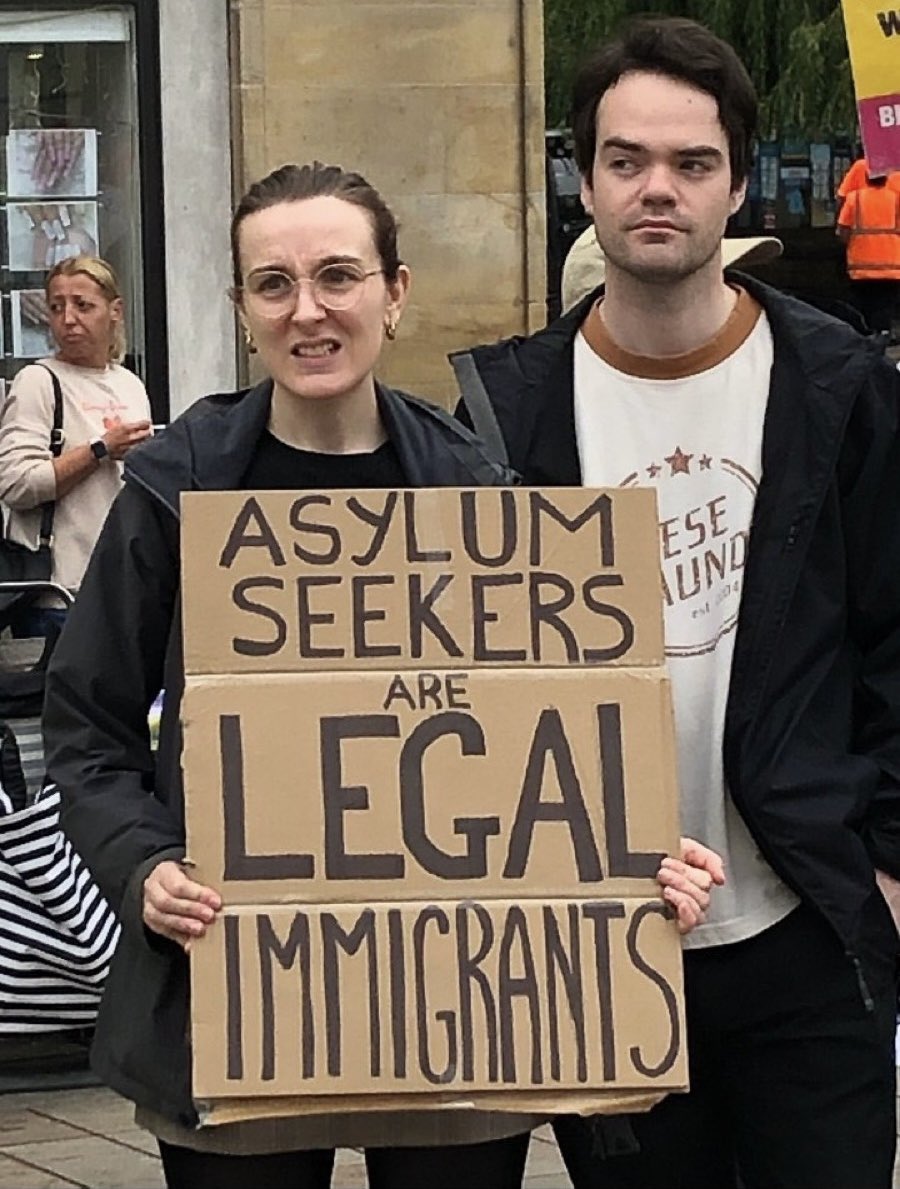 ASYLUM
SEEKERS
ARE
LEGAL
IMMIGRANTS
ESE
AUND
est
W
BI